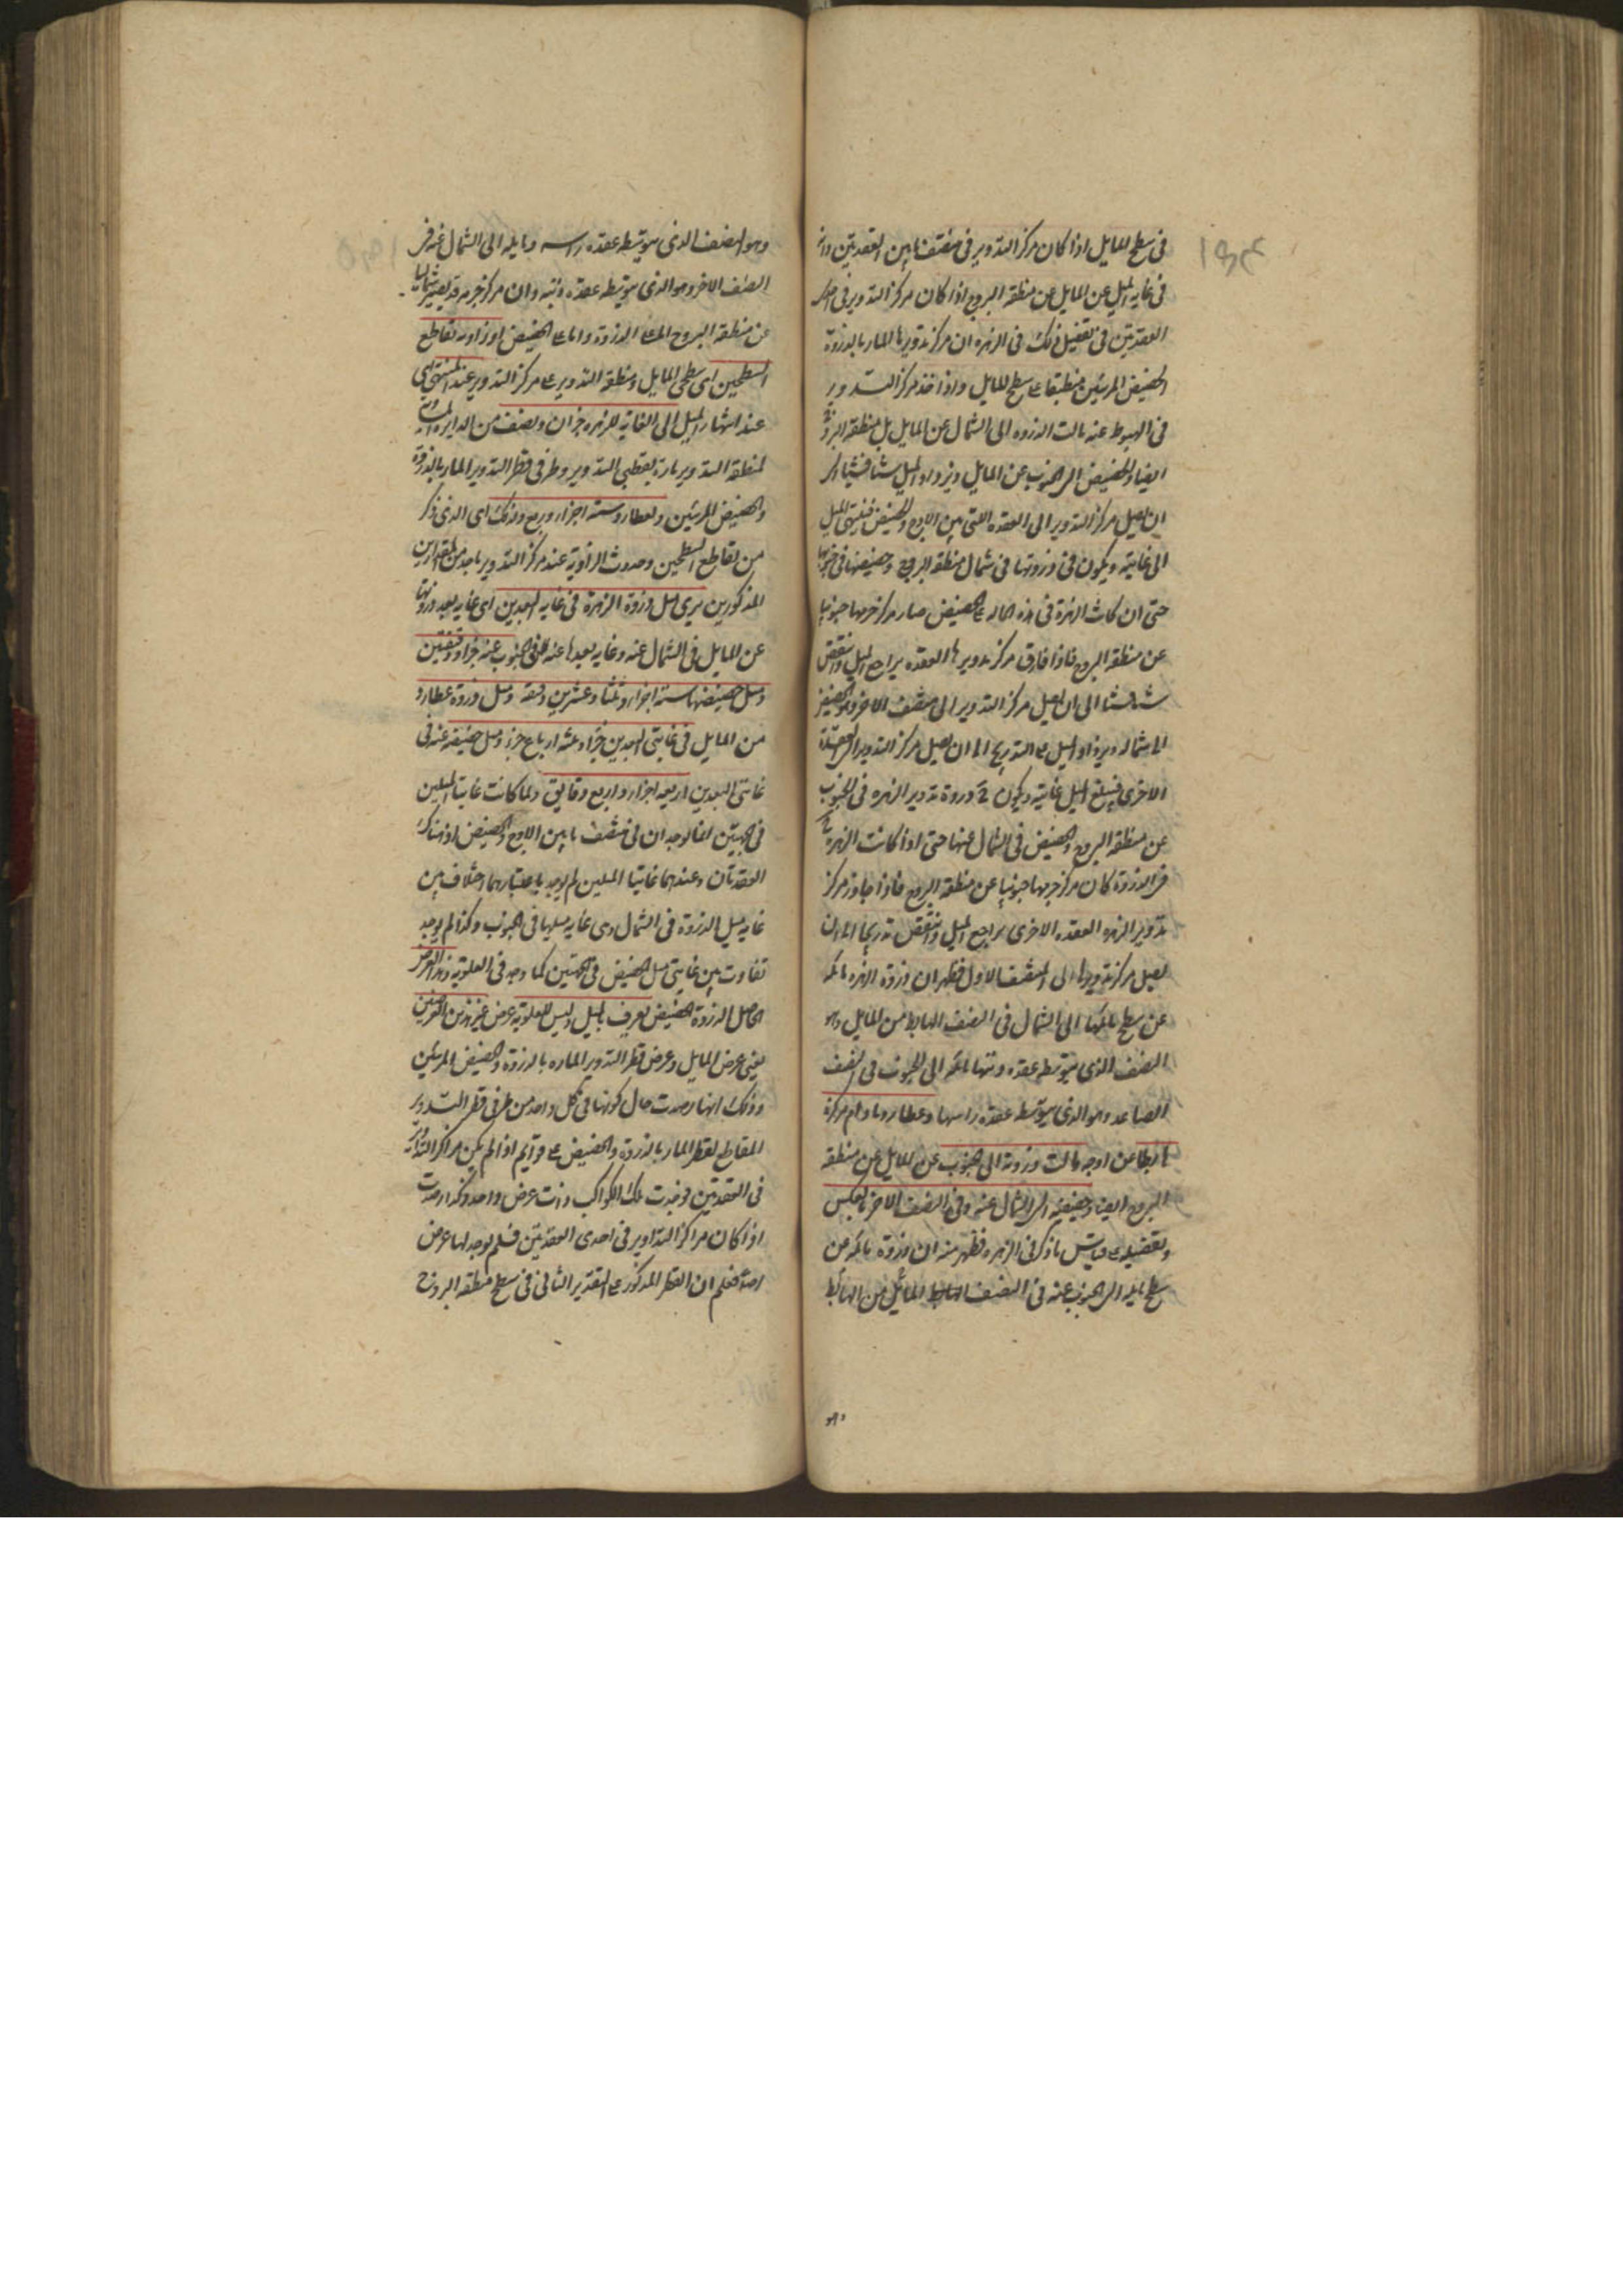 في سطح المايل اذا كان مركز التدوير في منتصف ما بين العقدتين وانه
في غاية الميل عن المايل عن منطقة البروج اذا كان مركز التدوير في احدى
العقدتين في تفصيل ذلك في الزهرة ان مركز تدويرها المار بالذروة
الحضيض المرئيين منطبقا على سطح المايل واذا اخذ مركز التدوير
في الهبوط عنه مالت الذروة الى الشمال عن المايل بل منطقة البروج
ايضا والحضيض الى الجنوب عن المايل ويزداد الميل شيئا فشيئا الى
ان يصل مركز التدوير الى العقدة التي بين الاوج والحضيض فينتهي الميل
الى غايته ويكون ذروتها في شمال منطقة البروج وحضيضها في جنوبها
حتى ان كانت الزهرة في هذه الحالة على الحضيض صار مركز جرمها جنوبيا
عن منطقة البروج فاذا فارق مركز تدويرها العقدة يراجع الميل وانتقص
شيئا فشيئا الى ان يصل مركز التدوير الى منتصف الاخر وهو الحضيض
الى شماله ويزداد الميل على التدريج الى ان يصل مركز التدوير الى العقدة
الاخرى فيبلغ الميل غايته ويكون ح ذروة تدوير الزهرة في الجنوب
عن منطقة البروج والحضيض في الشمال عنها حتى اذا كانت الزهرة ح
في الذروة كان مركز جرمها جنوبيا عن منطقة البروج فاذا جاوز مركز
تدوير الزهرة العقدة الاخرى يراجع الميل وانتقص تدريجا الى ان
يصل مركز تدويرها الى المنتصف الاول فظهر ان ذروة الزهرة مائلة
عن سطح مايلها الى الشمال في النصف الهابط من المايل وهو
النصف الذي يتوسطه عقدة ذنبها مائلة الى الجنوب في النصف
الصاعد وهو الذي يتوسطه عقدة راسها وعطارد ما دام مركزه
هابطا عن اوجه مالت ذروته الى الجنوب عن المايل عن منطقة
البروج ايضا وحضيضه الى الشمال عنه وفي النصف الاخر بالعكس
وتفصيله على قياس ما ذكر في الزهرة فظهر منه ان ذروة مائلة عن
سطح مايله الى الجنوب عنه في النصف الهابط المائل من الهابط
وهو
وهو النصف الذي يتوسطه عقدة راسه ومايله الى الشمال عنه في
النصف الاخر وهو الذي يتوسطه عقدة ذنبه وان مركز جرمه قد يصير شماليا
عن منطقة البروج اما على الذروة واما على الحضيض وزاوية تقاطع
السطحين اي سطحي المايل ومنطقة التدوير على مركز التدوير عند المنتهى اي
عند انتهاء الميل الى الغاية للزهرة جزان ونصف من الدايرة
لمنطقة التدوير مارة بقطبي التدوير وطرفي قطر التدوير المار بالذروة
والحضيض المرئيين ولعطارد ستة اجزاء وربع وذلك اي الذي ذكر
من تقاطع السطحين وحدوث الزاوية عند مركز التدوير باحد من المقدارين
المذكورين يرى ميل ذروة الزهرة في غاية البعدين اي غاية بعد ذروتها
عن المايل في الشمال عنه وغاية بعدها عنه في الجنوب عنه جزا ودقيقتين
وميل حضيضها ستة اجزاء وثلثا وعشرين دقيقة وميل ذروة عطارد
من المايل في غايتي البعدين جزا وثلثة ارباع جزء وميل حضيضه عنه في
غايتي البعدين اربعة اجزاء واربع دقايق ولما كانت غايتا الميلين
في الجهتين انما يوجدان في منتصف ما بين الاوج والحضيض اذ هناك
العقدتان وعندهما غايتا الميلين لم يوجد باعتبارهما اختلاف بين
غاية ميل الذروة في الشمال وبين غاية ميلها في الجنوب وكذا لم يوجد
تفاوت بين غايتي ميل الحضيض في الجهتين كما وجد في العلوية وهذا العرض
الحاصل للذروة والحضيض يعرف بالميل وليس للعلوية عرض غير هذين العرضين
يعني عرض المايل وعرض قطر التدوير المارة بالذروة والحضيض المرئيين
وذلك انها رصدت حال كونها في كل واحد من طرفي قطر التدوير
المقاطع لقطر المار بالذروة والحضيض على قوايم اذا لم يكن مراكز التداوير
في العقدتين فوجدت تلك الكواكب ذات عرض واحد وكذا رصدت
اذا كان مراكز التداوير في احدى العقدتين فلم يوجد لها عرض
اصلا فعلم ان القطر المذكور على التقدير الثاني في سطح منطقة البروج